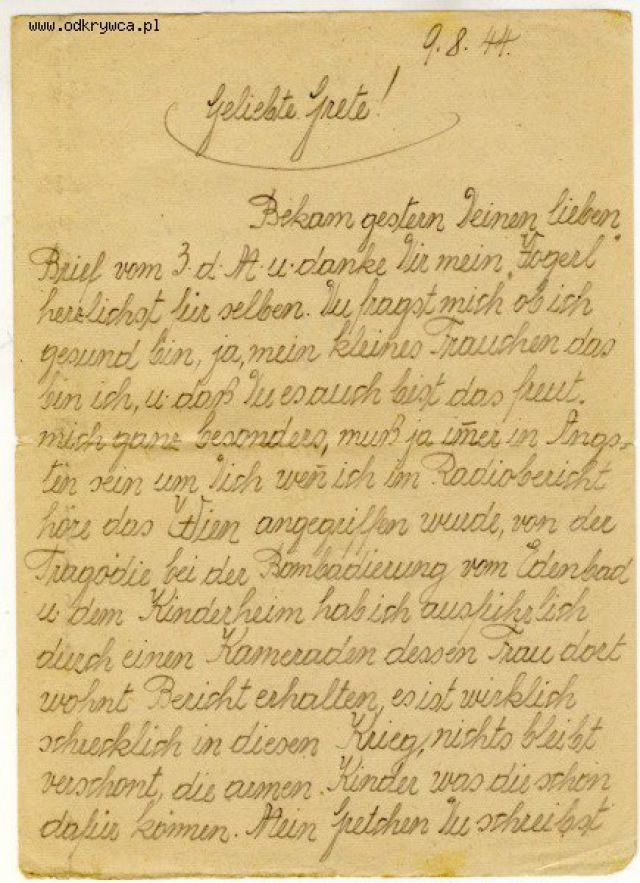 www.odkrywca.pl
9. 8. 44.
Geliebte Grete!
Bekam gestern Deinen lieben
Brief vom 3. d. M. u. danke Dir mein "Zogerl"
herzlichst für selben. Du fragst mich ob ich
gesund bin, ja, mein kleines Frauchen das
bin ich, u. daß Du es auch bist das freut
mich ganz besonders, muß ja im̅er in Angs-
ten sein um Dich wen̅ ich im Radiobericht
höre das Wien angegriffen wurde, von der
Tragödie bei der Bombadierung vom Edenbad
u. dem Kinderheim hab ich ausführlich
durch einen Kameraden dessen Frau dort
wohnt Bericht erhalten, es ist wirklich
schrecklich in diesen Krieg, nichts bleibt
verschont, die armen Kinder was die schon
dafür können. Mein Gretchen Du schreibst